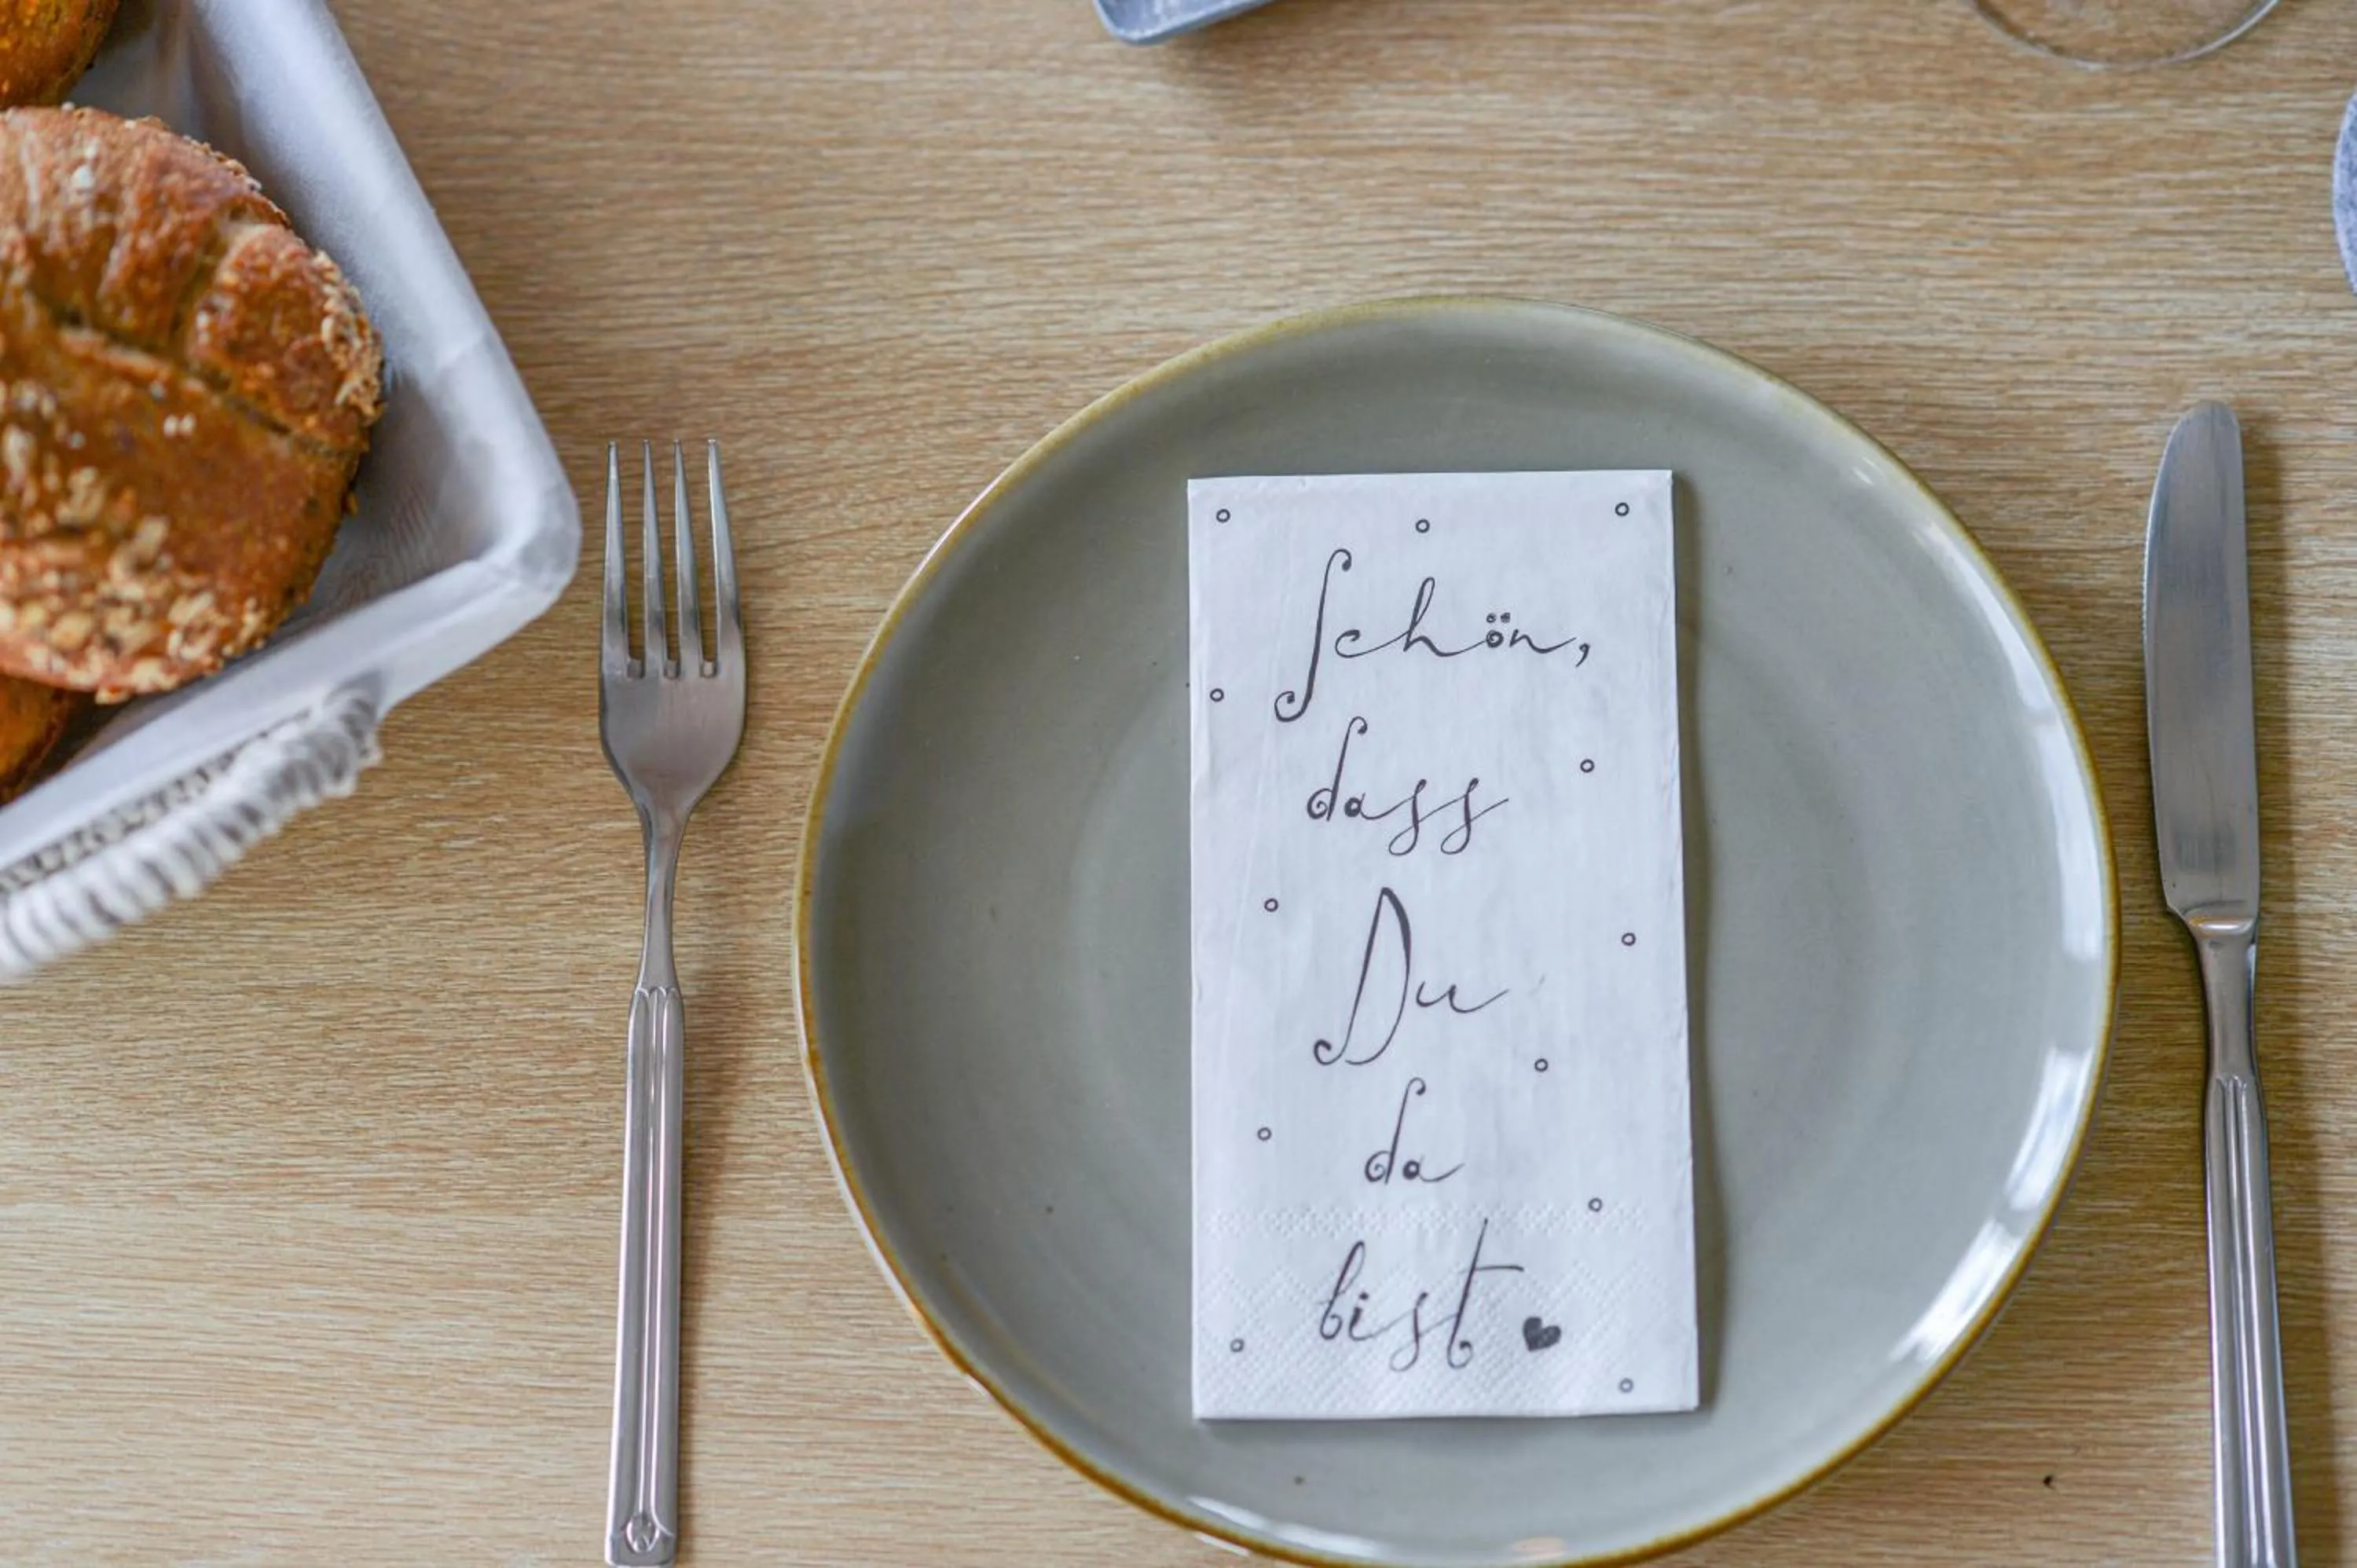 Schön,
dass
Du
da
bist